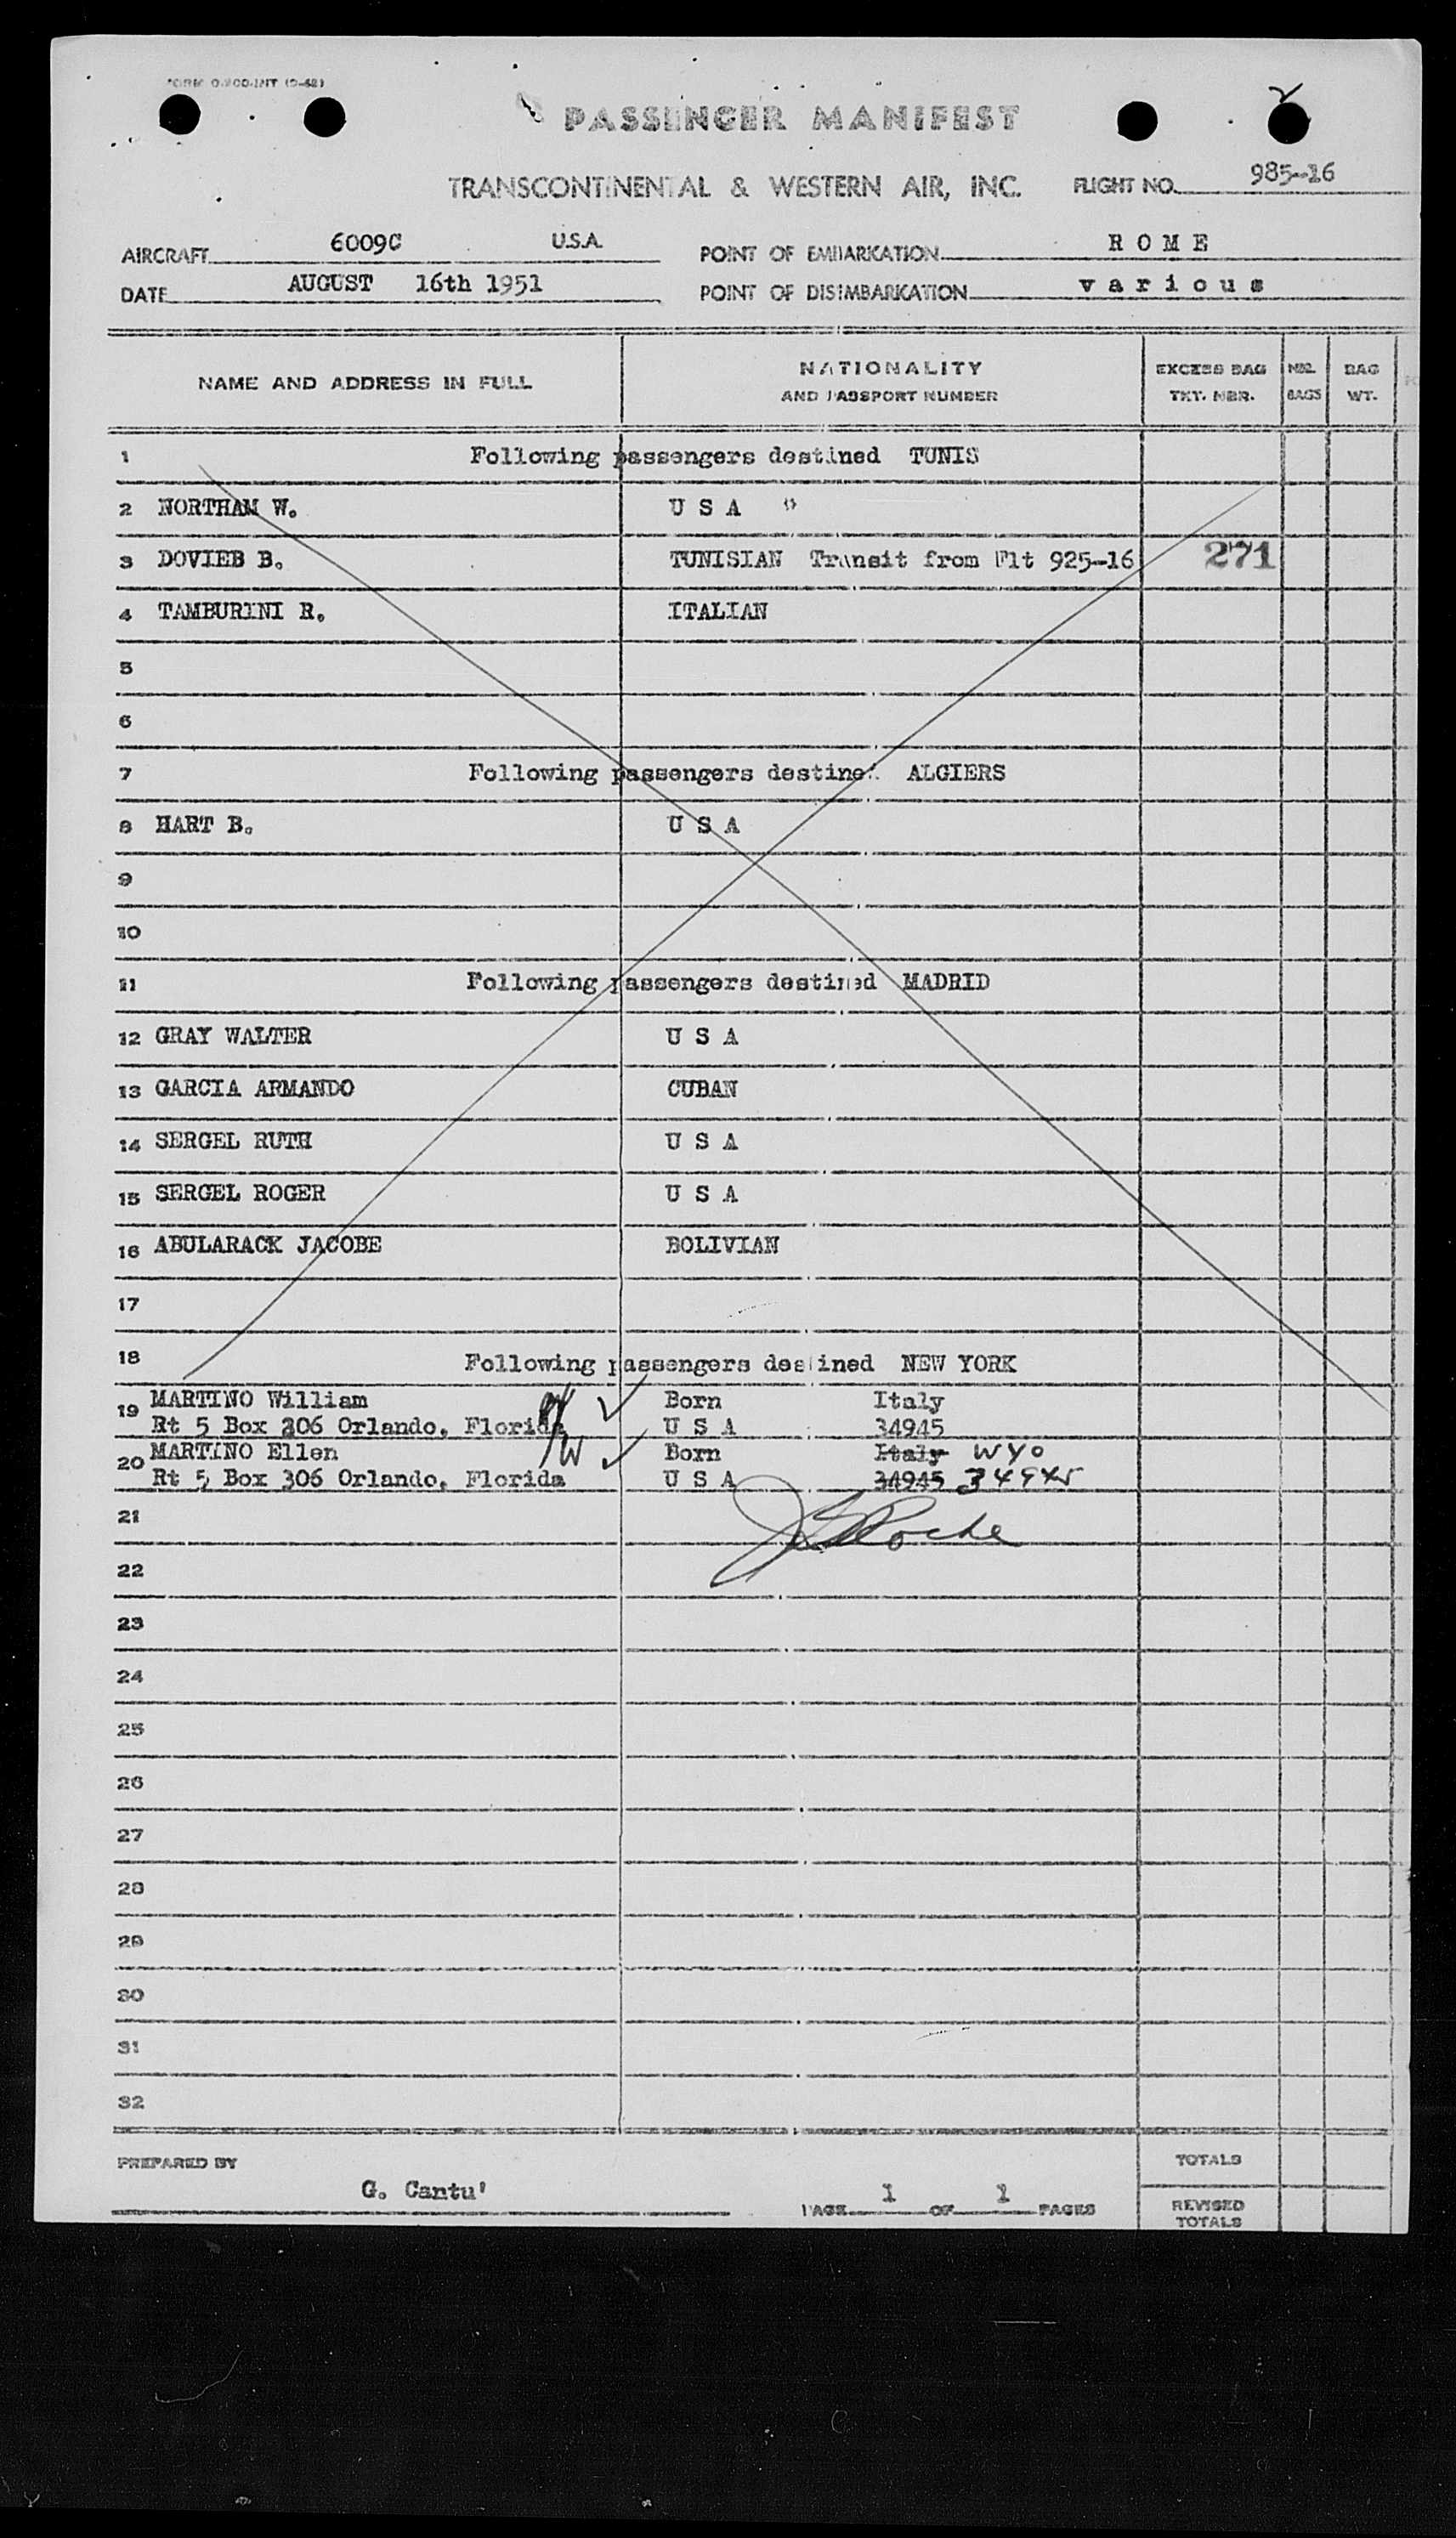 PASSENGER MANIFEST
TRANSCONTINENTAL & WESTERN AIR, INC. FLIGHT NO. 985-16
AIRCRAFT 6009C U.S.A. POINT OF EMBARKATION R O M E
DATE AUGUST 16th 1951 POINT OF DISEMBARKATION v a r i o u s
NAME AND ADDRESS IN FULL NATIONALITY AND PASSPORT NUMBER EXCESS BAG TKT. NBR. NBR. BAGS BAG WT.
1 Following passengers destined TUNIS
2 NORTHAM W. U S A "
3 DOVIEB B. TUNISIAN Transit from Flt 925-16 271
4 TAMBURINI R. ITALIAN
5
6
7 Following passengers destined ALGIERS
8 HART B. U S A
9
10
11 Following passengers destined MADRID
12 GRAY WALTER U S A
13 GARCIA ARMANDO CUBAN
14 SERGEL RUTH U S A
15 SERGEL ROGER U S A
16 ABULARACK JACOBE BOLIVIAN
17
18 Following passengers destined NEW YORK
19 MARTINO William Born Italy
Rt 5 Box 306 Orlando, Florida U S A 34945
20 MARTINO Ellen Born Italy WYO
Rt 5 Box 306 Orlando, Florida U S A 34945 34945
21
22
23
24
25
26
27
28
29
30
31
32
PREPARED BY G. Cantu' PAGE 1 OF 1 PAGES
TOTALS
REVISED TOTALS